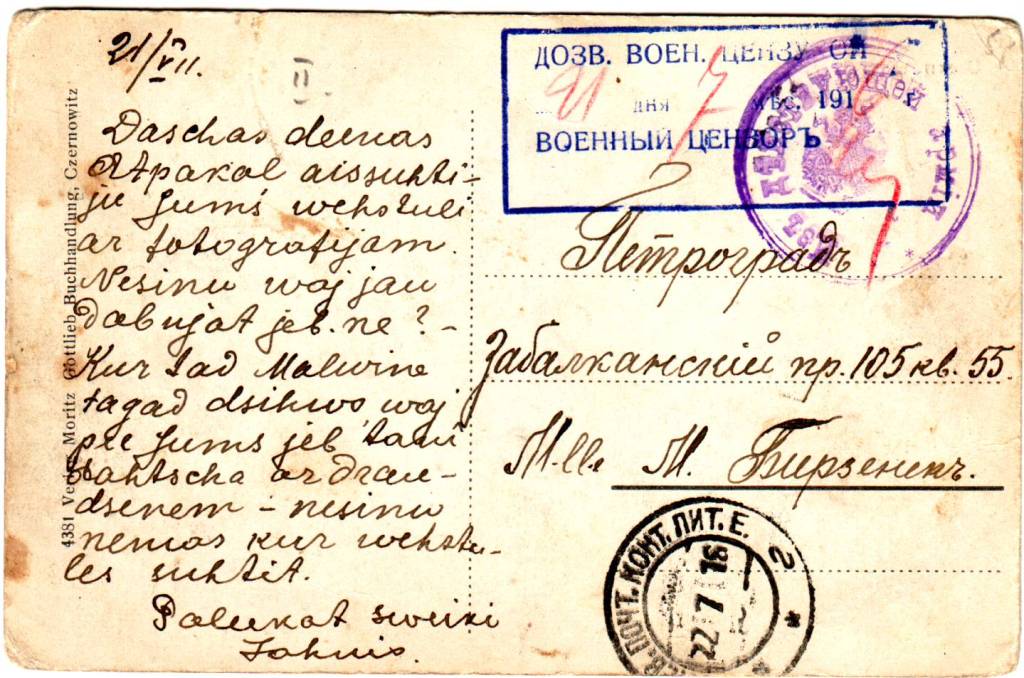 21/VII.
Daschas deenas
Atpakaļ aissuhti-
ju Jums wehstuli
ar fotografijam.
Nesinu waj jau
dabujāt jeb. ne? -
Kur tad Malwine
tagad dsihwo waj
pee Jums jeb tani
ar drau-
dsenem - nesinu
nemas kur wehstu-
les suhtit.
Paleekat sweiki
Jahnis.
4381 Verlag Moritz Gottlieb Buchhandlung, Czernowitz
ДОЗВ. ВОЕН. ЦЕНЗУ ОЙ
21 дня 7 мѣс. 191 г
ВОЕННЫЙ ЦЕНЗОРЪ
ДѢЙСТВУЮЩЕЙ АРМІИ
Петроградъ
Забалканскій пр. 105 кв. 55
M-lle М. Бирзенекъ.
ПОЧТ. КОНТ. ЛИТ. Е. 2
22 7 16